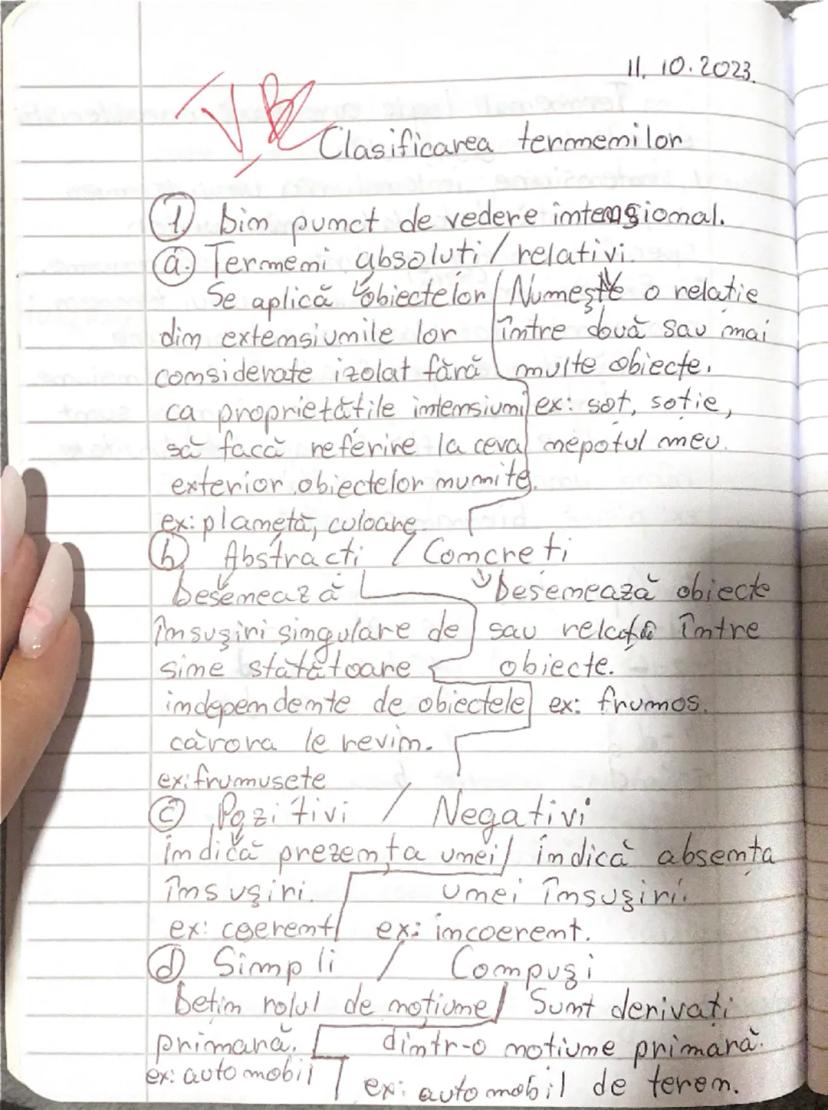 11. 10. 2023.
V BL
Clasificarea termenilor
① Din punct de vedere intensional.
ⓐ. Termeni absoluti / relativi.
Se aplică obiectelor / Numește o relatie
din extensiunile lor între două sau mai
considerate izolat fără multe obiecte.
ca proprietătile intensiuni ex: sot, sotie,
să facă referire la ceva nepotul meu.
exterior obiectelor numite.
ex: planetă, culoare.
ⓑ Abstracti / Concreti
Desemează Desemează obiecte
însușiri singulare de sau relații între
sine stătătoare obiecte.
independente de obiectele ex: frumos.
cărora le revin.
ex: frumusete
ⓒ Pozitivi / Negativi
indică prezența unei / indică absența
însușiri. unei însușiri.
ex: coerent / ex: incoerent.
ⓓ Simpli / Compuși
Dețin rolul de noțiune / Sunt derivați
primară. dintr-o notiune primară.
ex: automobil ex: automobil de teren.